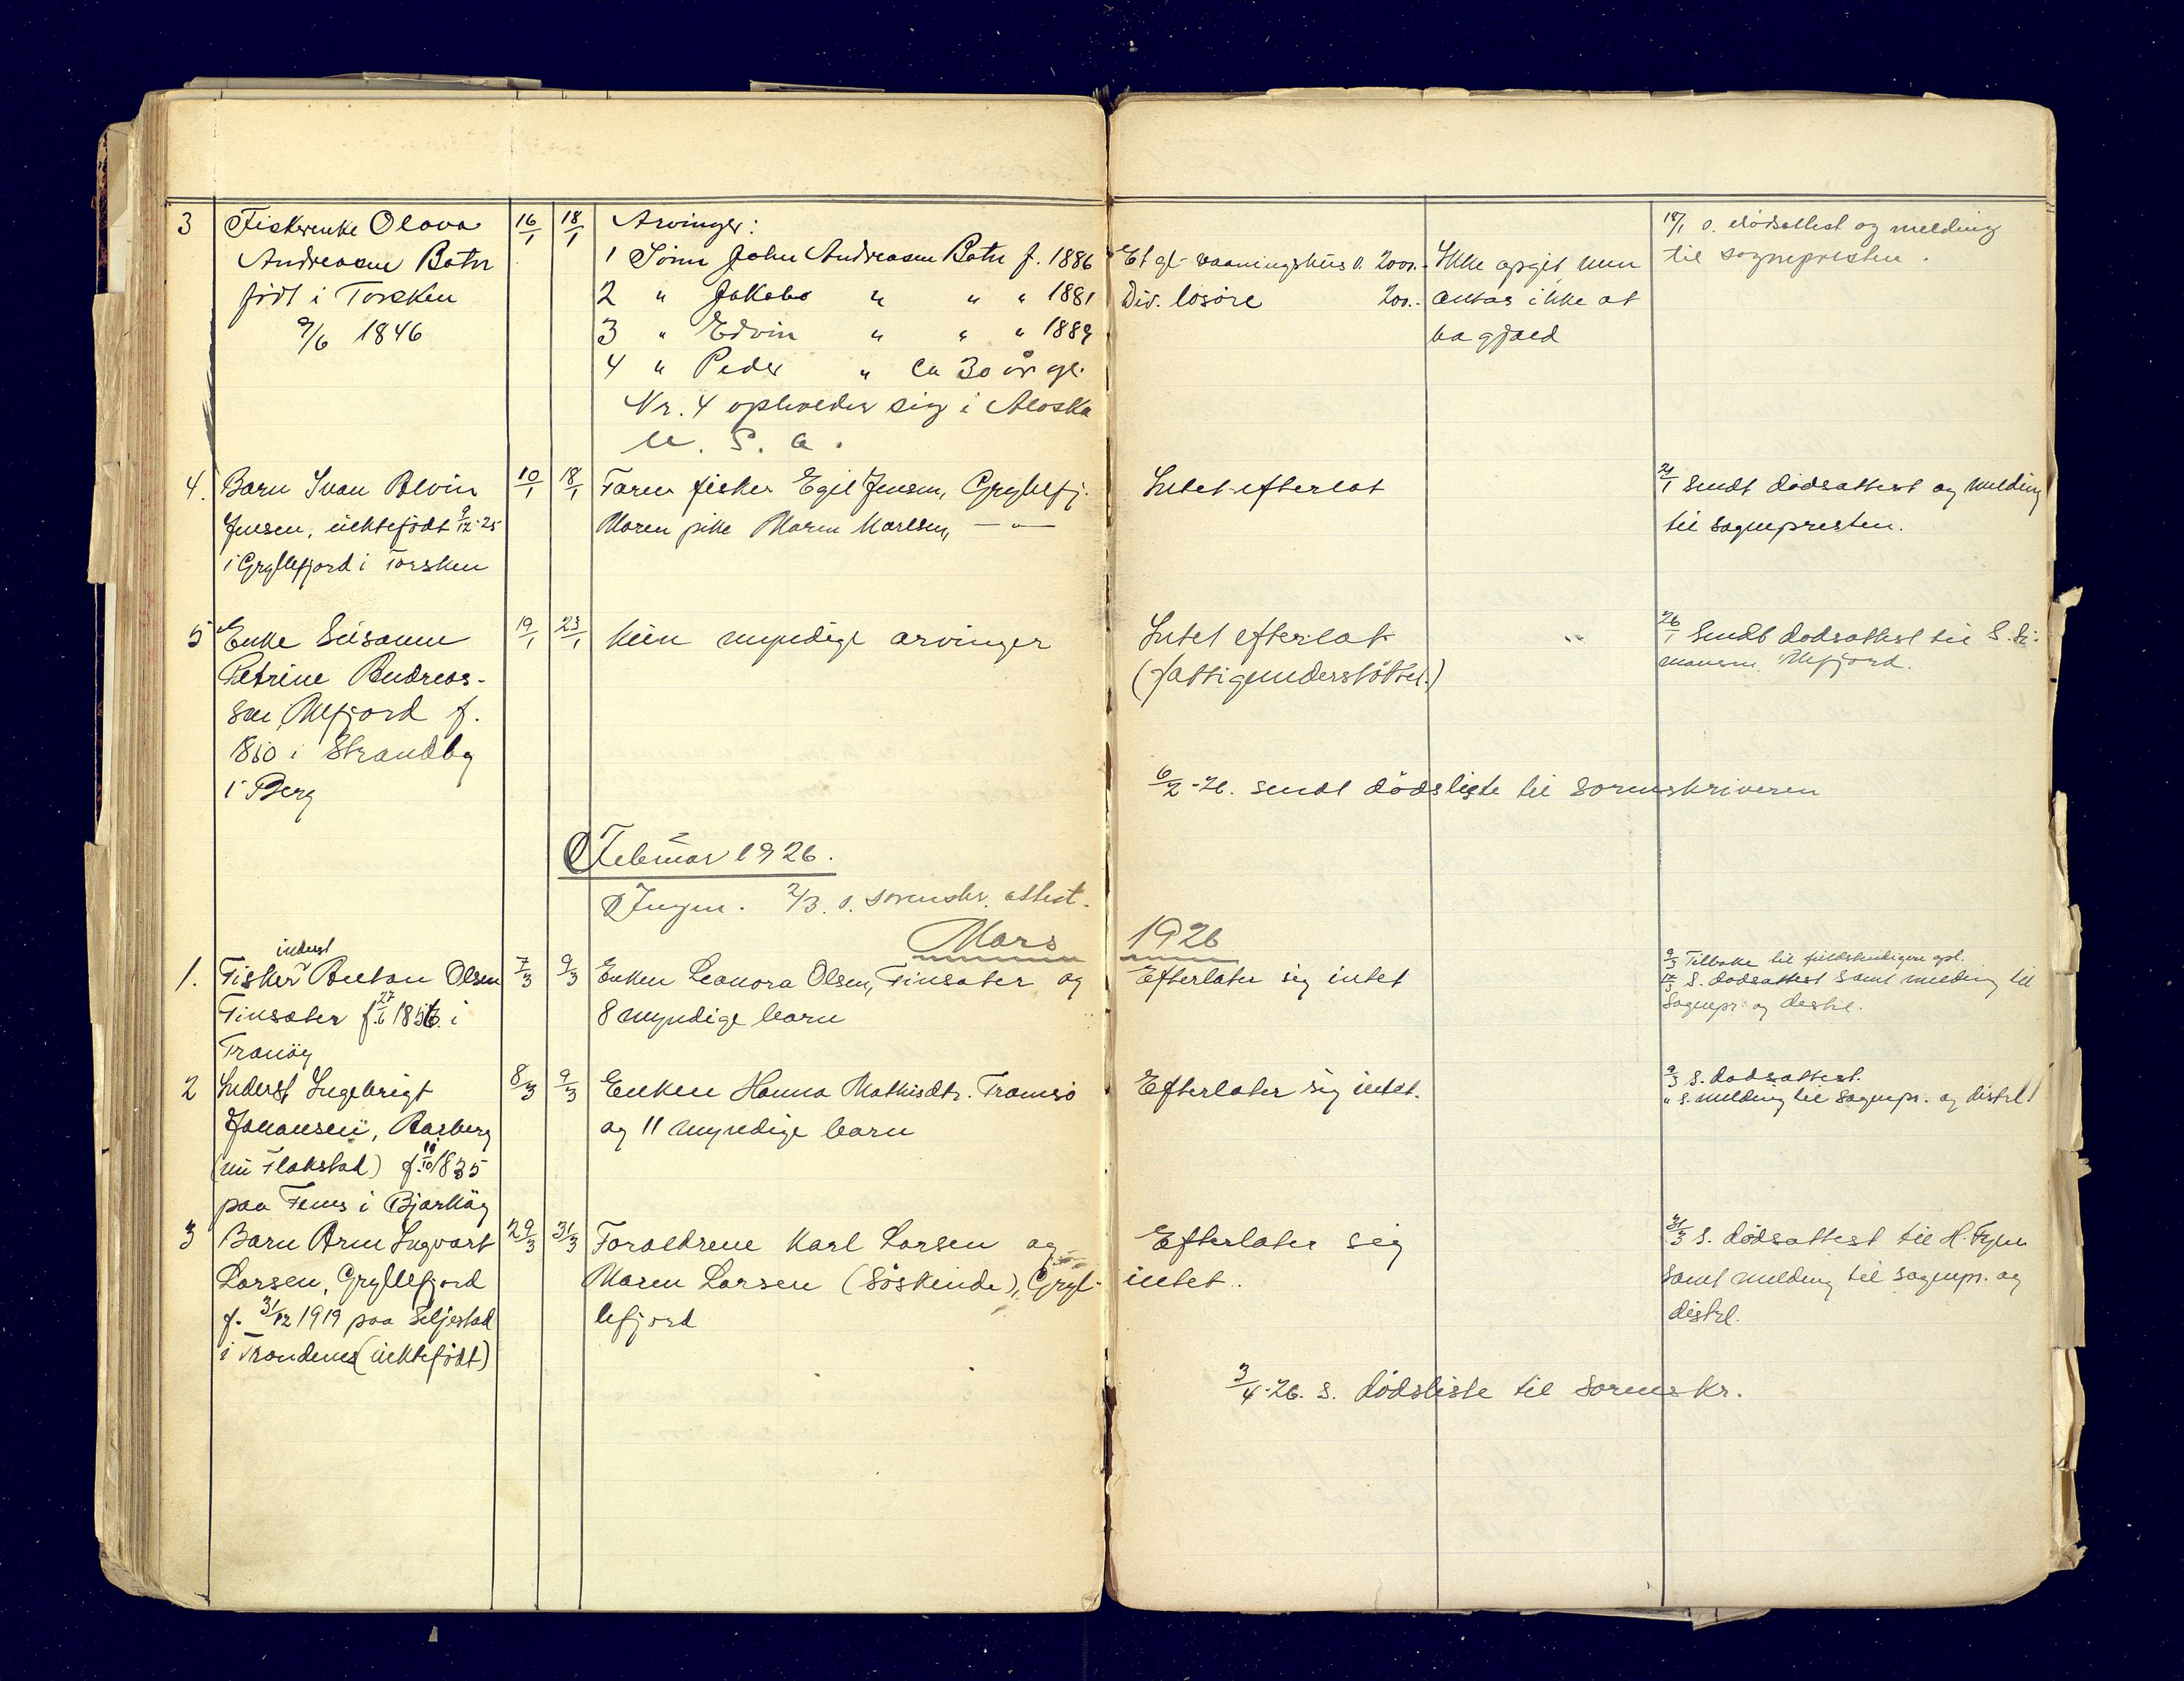 3 Fiskerenke Olava 16/1 18/1 Arvinger: 18/1 s. dødsattest og melding
Andreasen Botn 1 Sönn John Andreasen Botn f. 1886 Et gl. vaaningshus v. 2000.- Ikke opgit men til sognepresten.
födt i Torsken 2 " Jakobs " " " 1881 Div. losöre 200.- antas ikke at
9/6 1846 3 " Edvin " " " 1889 ha gjæld
4 " Peder " ca 30 år gl.
Nr. 4 opholder sig i Alaska
U. S. a.
4. Barn Ivan Alvin 10/1 18/1 Faren fisker Egil Jensen, Gryllefj. Intet efterlat 21/1 Sendt dødsattest og melding
Jensen, uektefödt 9/12-25 Moren pike Maren Karlsen, — " — til sognepresten.
i Gryllefjord i Torsken
5 Enke Susanne 19/1 23/1 Kun myndige arvinger Intet efterlat " 26/1 Sendt dødsattest til S. Si-
Petrine Andreas- (fattigunderstöttet.) monsen Mefjord.
sen, Mefjord f.
1850 i Strandby
i Berg
6/2-26. sendt dödsliste til sorenskriveren
Februar 1926.
Ingen. 2/3. s. sorenskr. attest.
Mars 1926
inderst
1. Fisker Anton Olsen 7/3 9/3 Enken Leonora Olsen, Finsæter og Efterlater sig intet 9/3 Tilbake til fuldstendigere opl.
Finsæter f. 27/6 1856 i 8 myndige barn 17/3 S. dødsattest samt melding til
Tranöy Sognepr. og distrl.
2 Inderst Ingebrigt 8/3 9/3 Enken Hanna Mathisdtr. Tromsö Efterlater sig intet. 9/3 S. dødsattest.
Johansen, Aasberg og 11 myndige barn " s. melding til sognepr. og distrl
(nu Flakstad) f. 10/10 1835
paa Fenes i Bjarköy
3 Barn Arne Ingvart 29/3 31/3 Forældrene Karl Larsen og Efterlater sig 31/3 S. dødsattest til H. Fyhn
Larsen, Gryllefjord Maren Larsen (Söskende), Gryl- intet. samt melding til sognepr. og
f. 31/12 1919 paa Seljestad lefjord distrl.
i Trondenes (uektefödt)
3/4-26. s. dödsliste til Sorenskr.